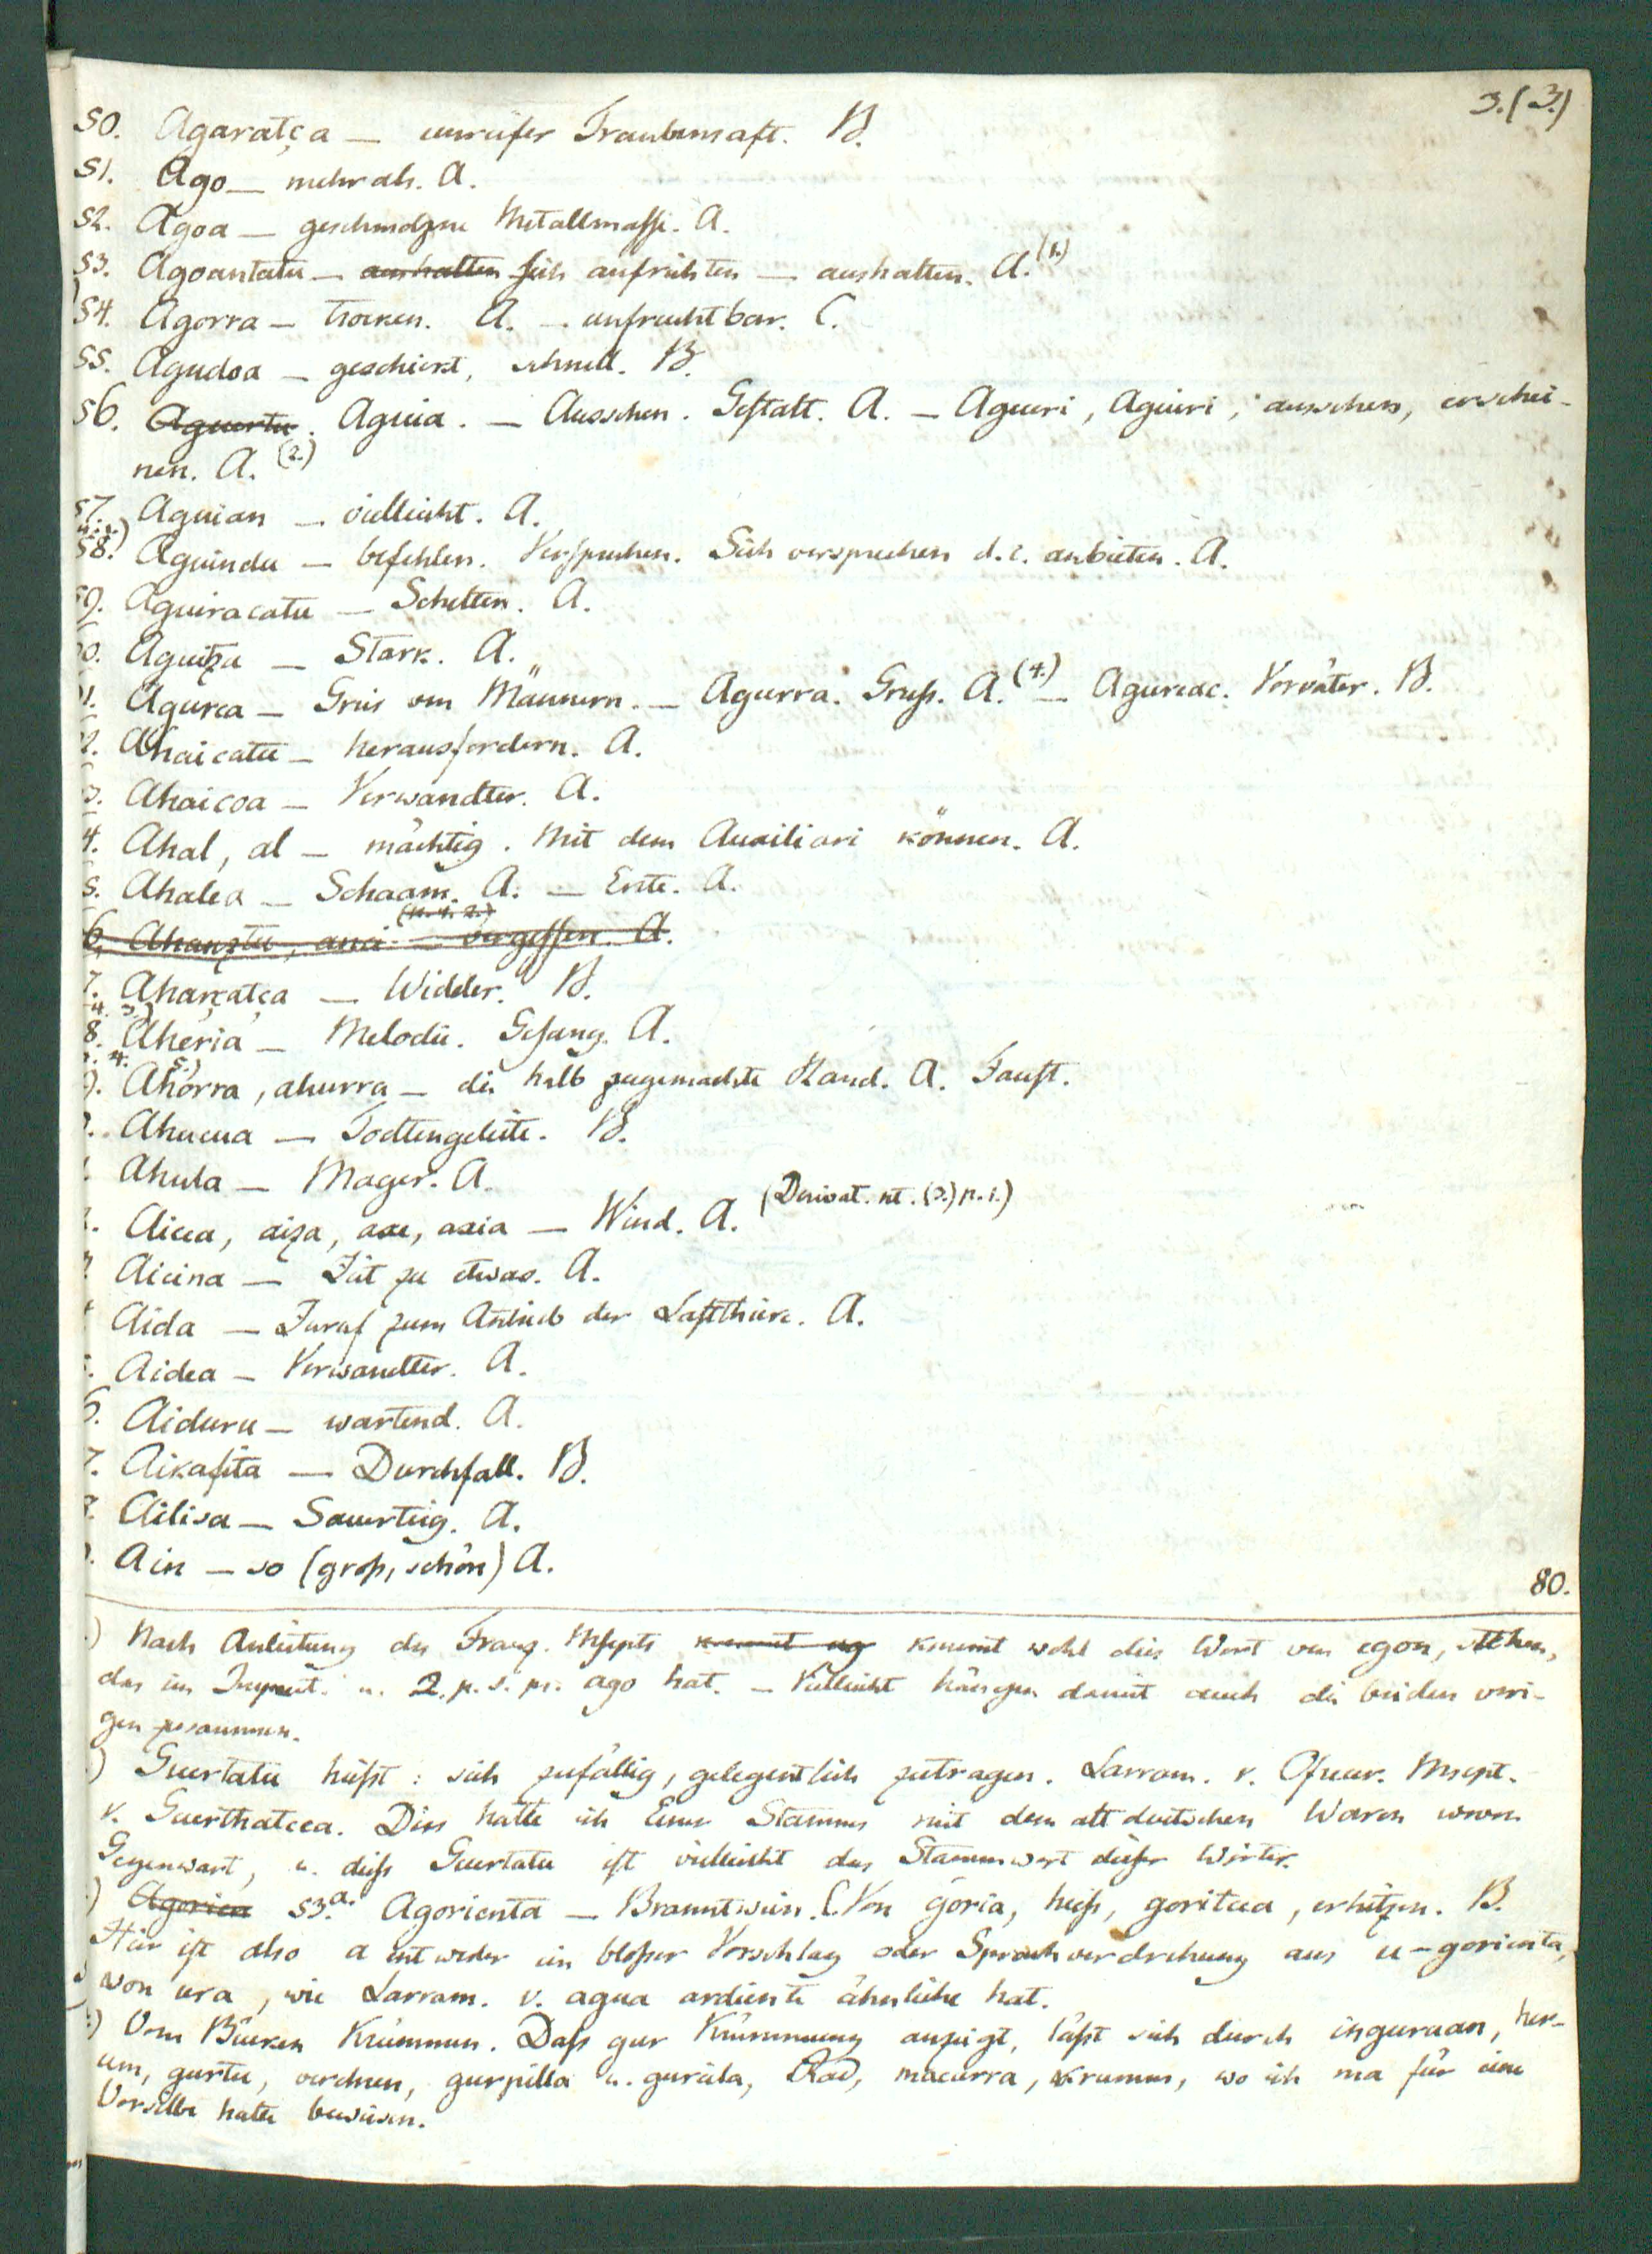 3.(3.)
50. Agaratça — unreifer Traubensaft. B.
51. Ago — mehr als. A.
52. Agoa — geschmolzene Metallmasse. A.
53. Agoantatu — aushalten sich aufrichten — aushalten. A.(1.)
54. Agorra — trocken. A. — unfruchtbar. C.
55. Agudoa — geschickt, schnell. B.
56. Aguertu. Aguia. — Aussehen. Gestalt. A. — Agueri, Aguiri, aussehen, erschei-
nen. A. (2.)
57. Aguian — vielleicht. A.
58. Aguindu — befehlen. Versprechen. Sich versprechen d. i. anbieten. A.
59. Aguiracatu — Schelten. A.
0. Aguitza — Stark. A.
1. Agurea — Greis von Männern. — Agurra. Gruss. A. (4.) — Agureac. Vorväter. B.
2. Ahaicatu — herausfordern. A.
3. Ahaicoa — Verwandter. A.
4. Ahal, al — mächtig. Mit dem Auxiliari können. A.
5. Ahalea — Schaam. A. — Ente. A.
(n. 4. 2.)
6. Ahanztu, anci — vergessen. A.
7. Aharçatça — Widder. B.
4. 3.)
8. Aheria — Melodie. Gesang. A.
4. 5.)
9. Ahorra, ahurra — die halb zugemachte Hand. A. Faust.
Ahucua — Todtengeleite. B.
Ahula — Mager. A.
Aicea, aiza, axe, axia — Wind. A. (Derivat. nt. (3.) n. 1.)
Aicina — Zeit zu etwas. A.
Aida — Zuruf zum Antrieb der Lastthiere. A.
Aidea — Verwandter. A.
6. Aiduru — wartend. A.
7. Aikafita — Durchfall. B.
Ailisa — Sauerteig. A.
Ain — so (gross, schön) A.
80.
) Nach Anleitung des Franz. Mscpts kommt wohl dies Wort von egon, stehen,
das im Imperat. u. 2. p. s. pr. ago hat. — Vielleicht hängen damit auch die beiden vori-
gen zusammen.
) Guertatu heisst: sich zufällig, gelegentlich zutragen. Larram. v. Mscpt.
v. Guerthatcea. Dies halte ich Eines Stammes mit dem altdeutschen Waren wovon
Gegenwart, u. diess Guertatu ist vielleicht das Stammwort dieser Wörter.
) Agorien 53.a. Agorienta — Branntwein. (Von goria, heiss, goritcea, erhitzen. B.
Hier ist also a entweder ein blosser Vorschlag oder Sprachverdrehung aus u-gorienta,
von ura, wie Larram. v. agua ardiente ähnliche hat.
) Vom Bücken Krümmen. Dass gur Krümmung anzeigt, lässt sich durch inguruan, her-
um, gurtu, verehren, gurpilla u. gurcila, Rad, macurra, krumm, wo ich ma für eine
Vorsilbe halte beweisen.